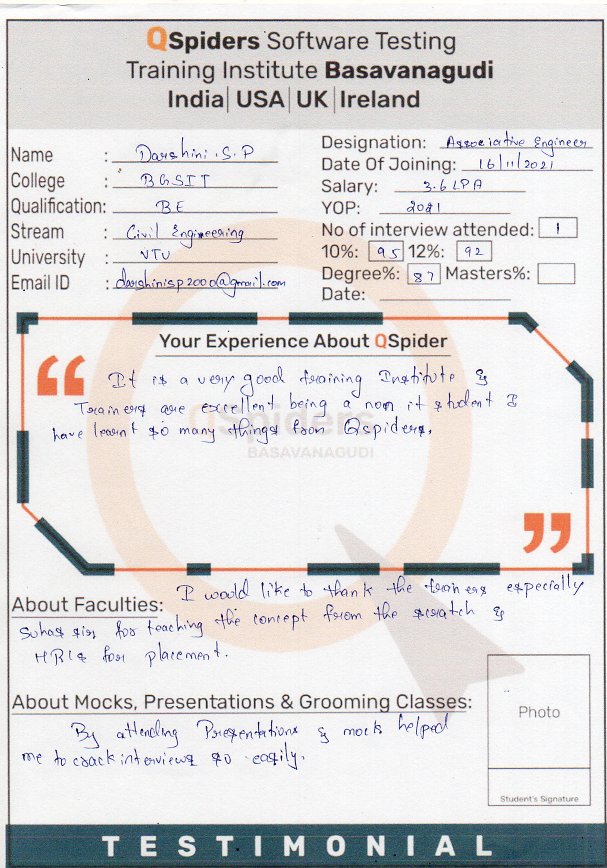 QSpiders Software Testing
Training Institute Basavanagudi
India| USA| UK| Ireland
Name : Darshini . S . P
College : BGSIT
Qualification: BE
Stream : Civil Engineering
University : VTU
Email ID : darshinisp2000@gmail.com
Designation: Associative Engineer
Date Of Joining: 16/11/2021
Salary: 3.6 LPA
YOP: 2021
No of interview attended: 1
10%: 95 12%: 92
Degree%: 87 Masters%:
Date:
Your Experience About QSpider
It is a very good training Institute &
Trainers are excellent being a non it student I
have learnt so many things from Qspiders.
QSpiders
BASAVANAGUDI
About Faculties: I would like to thank the trainers especially
Suhas sir for teaching the concept from the scratch &
HRIs for placement.
About Mocks, Presentations & Grooming Classes:
By attending Presentations & mocks helped
me to crack interviews so easily.
Photo
Student's Signature
TESTIMONIAL